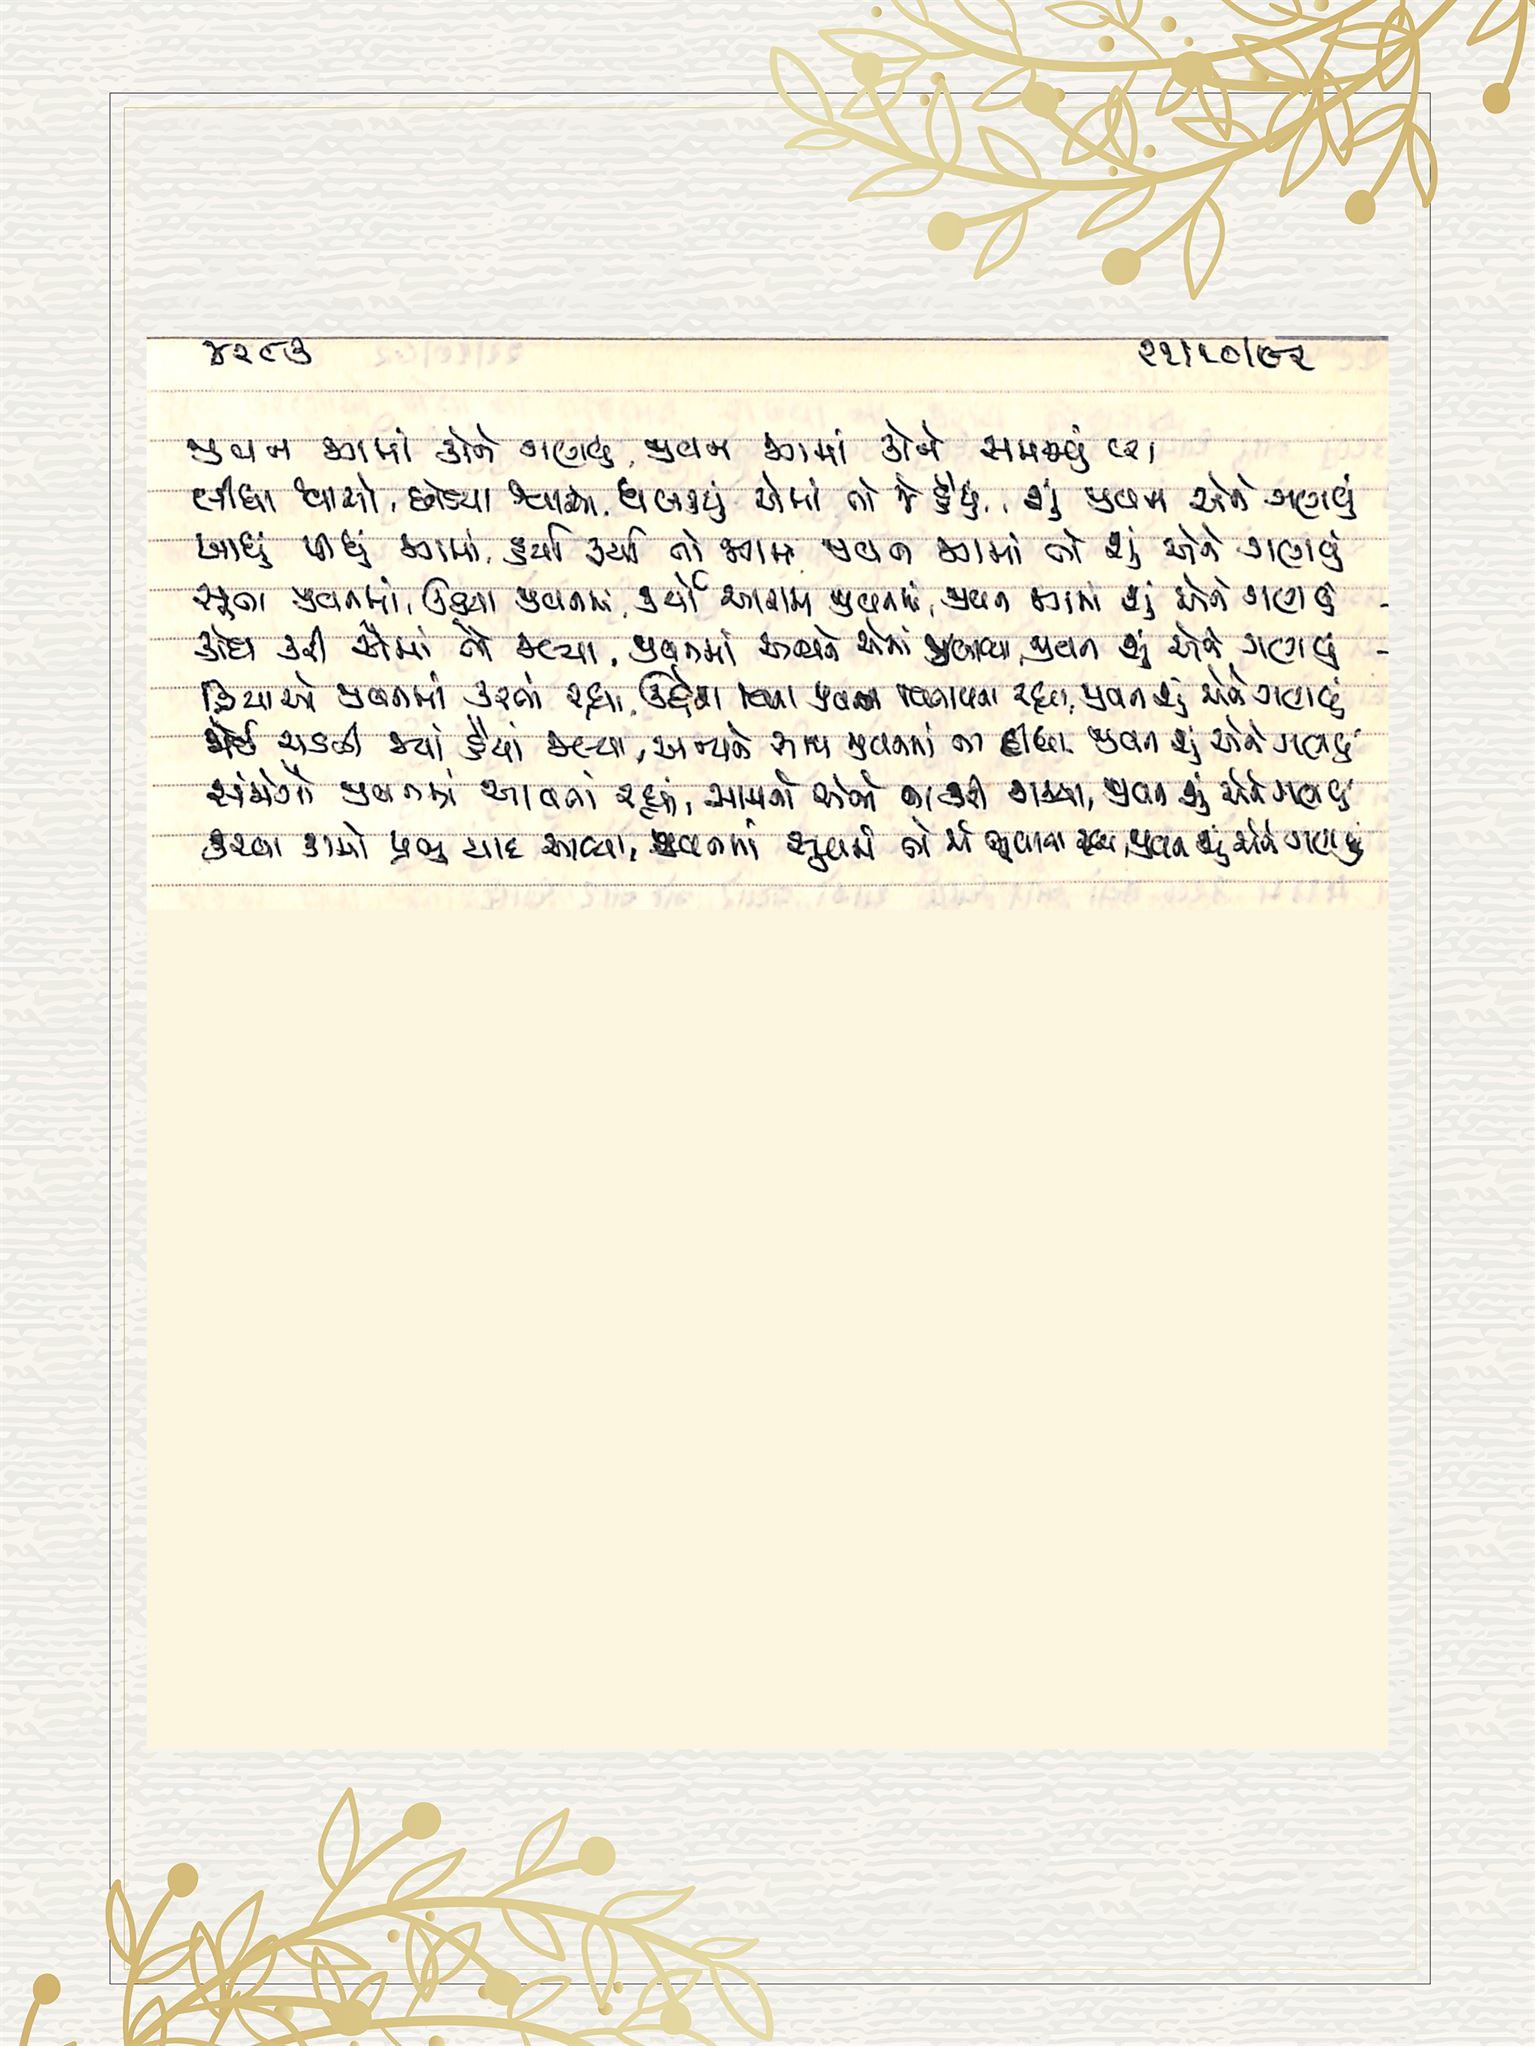 ૪૨૯૩ ૨૨/૧૦/૯૨
જીવન કામાં કોને ગણવું, જીવન કામાં કોને સમજવું (૨)
લીધા શ્વાસો, છોડયા શ્વાસો, ધબકયું એમાં તો જે હૈયું, શું જીવન એને ગણવું
ખાધું પીધું કામાં, હર્યા ફર્યા તો કામ જીવન કામાં તો શું એને ગણવું
સૂતા જીવનમાં, ઉઠયા જીવનમાં, કર્યો આરામ જીવનમાં, જીવન કામાં શું એને ગણવું -
ક્રોધ કરી એમાં તો જલ્યા, જીવનમાં અન્યને એમાં જલાવ્યા, જીવન શું એને ગણવું -
ક્રિયાઓ જીવનમાં કરતાં રહ્યા, ઉદ્દેશ વિના જીવન વિતાવતા રહ્યા, જીવન શું એને ગણવું
ચડી જ્યાં હૈયાં જલ્યા, અન્યને સાથ જીવનમાં ના દીધા જીવન શું એને ગણવું
સંજોગો જીવનમાં આવતાં રહ્યાં, સામનો એનો ના કરી શક્યા, જીવન શું એને ગણવું
કરવા કામો પ્રભુ યાદ આવ્યા, જીવનમાં તો ભુલાતા રહ્યા, જીવન શું એને ગણવું